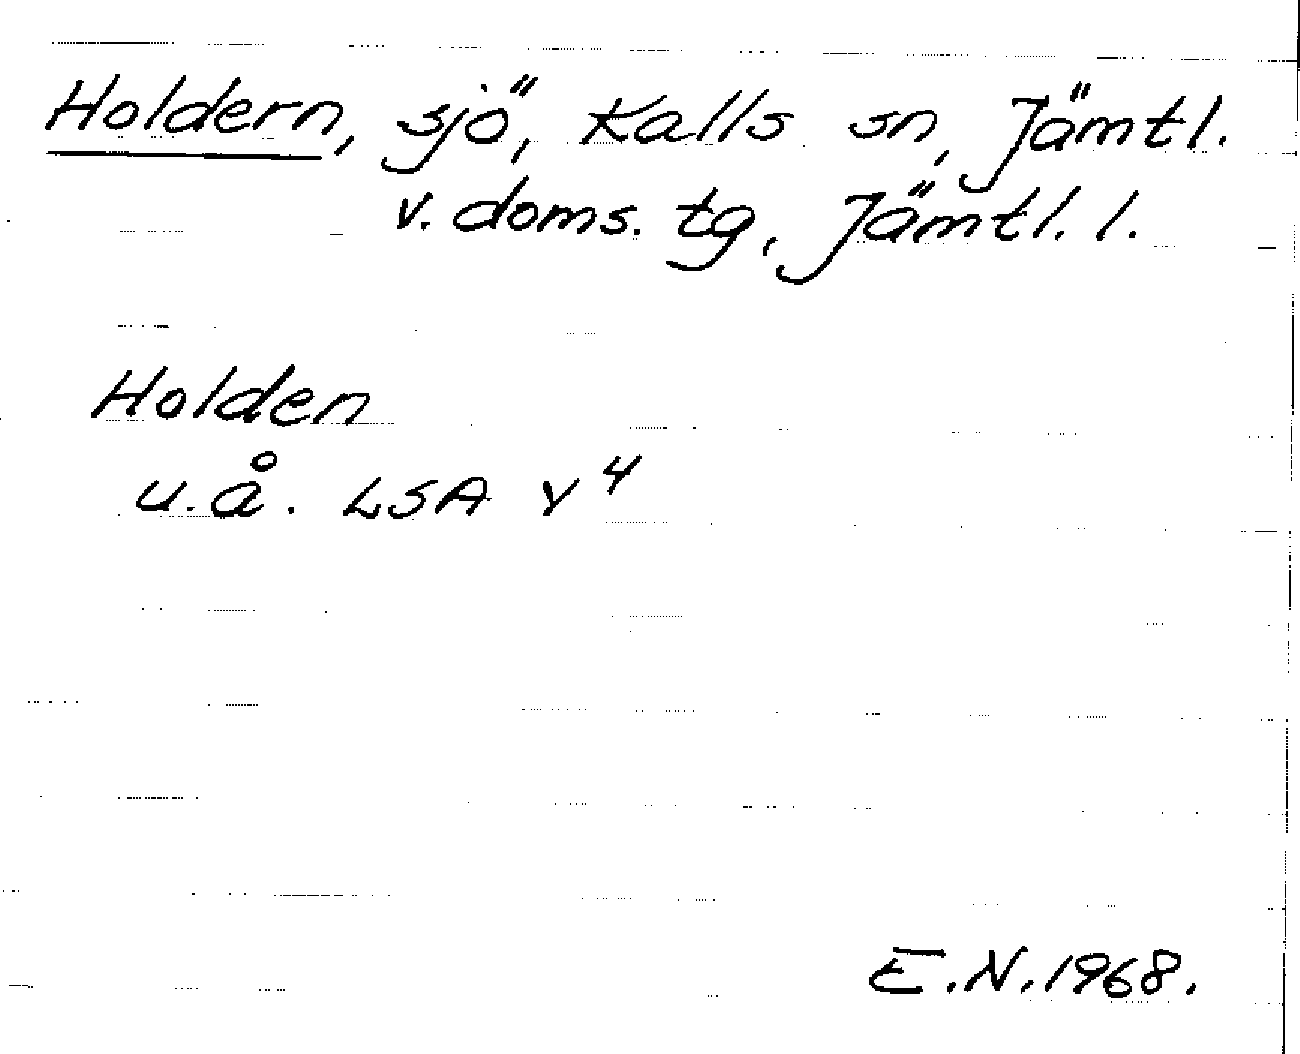 Holdern, sjö, Kalls sn, Jämtl.
v. doms. tg, Jämtl. l.
Holden
u.å. LSA Y 4
E.N. 1968.